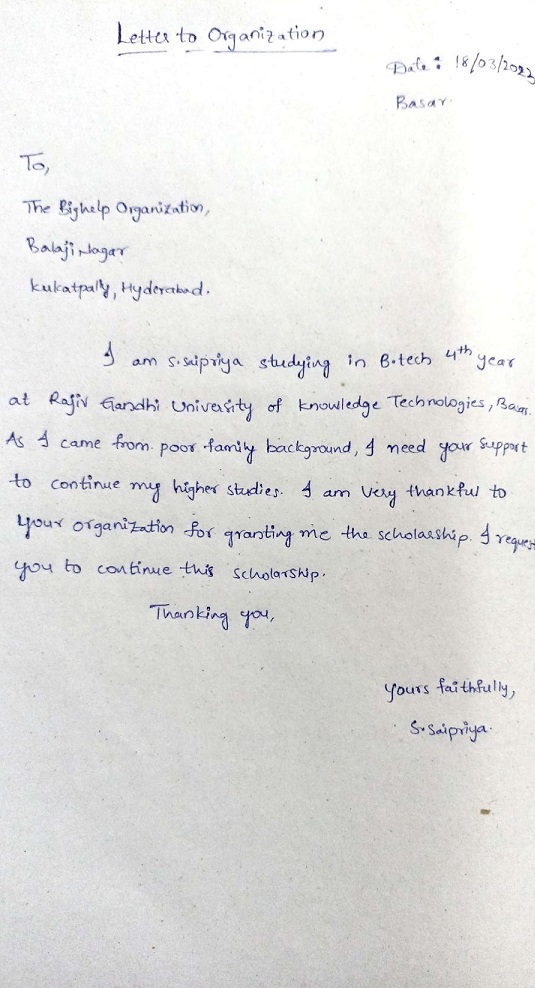 Letter to Organization
Date: 18/03/2023
Basar.
To,
The Bighelp Organization,
Balaji Nagar
Kukatpally, Hyderabad.
I am S.Saipriya studying in B.tech 4th year
at Rajiv Gandhi University of knowledge Technologies, Basar.
As I came from poor family background, I need your support
to continue my higher studies. I am very thankful to
your organization for granting me the scholarship. I request
you to continue this scholarship.
Thanking you,
yours faithfully,
S.Saipriya.